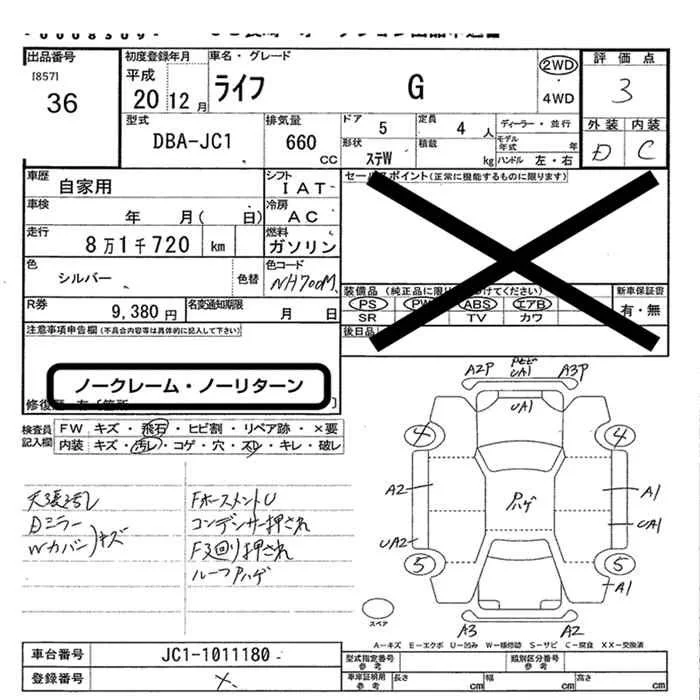 出品番号
[857]
36
初度登録年月
平成
20 12 月
車名・グレード
ライフ G
2WD
4WD
評価点
3
外装 内装
D C
型式
DBA-JC1
排気量
660
CC
ドア 5
定員 4 人
ディーラー・並行
モデル年式 年
形状 ステW
積載 kg
ハンドル 左・右
車歴
自家用
シフト
IAT
車検
年 月( 日)
冷房
AC
走行
8万1千720 km
燃料
ガソリン
色
シルバー
色替
色コード
NH700M
R券
9,380 円
名変通知期限
月 日
セールスポイント(正常に機能するものに限ります)
装備品
PS PW ABS エアB
SR TV カワ
新車保証書
有・無
後日品
注意事項申告欄(不具合内容等は具体的に記入して下さい)
ノークレーム・ノーリターン
検査員記入欄
FW キズ・飛石・ヒビ割・リペア跡・×要
内装 キズ・汚レ・コゲ・穴・スレ・キレ・破レ
天張汚レ
Dミラー
Wカバー
キズ
Fホースメント U
コンデンサー押され
F廻り押され
ルーフハゲ
A2P
UA1
A3P
UA1
4
4
A2
ハゲ
A1
UA1
UA2
5
5
A1
A3
A2
スペア
A-キズ E-エクボ U-凹み W-補修跡 S-サビ C-腐食 XX-交換済
車台番号
JC1-1011180
登録番号
×
型式指定番号
参考
類別区分番号
参考
車庫証明用
参考
長さ cm
幅 cm
高さ cm